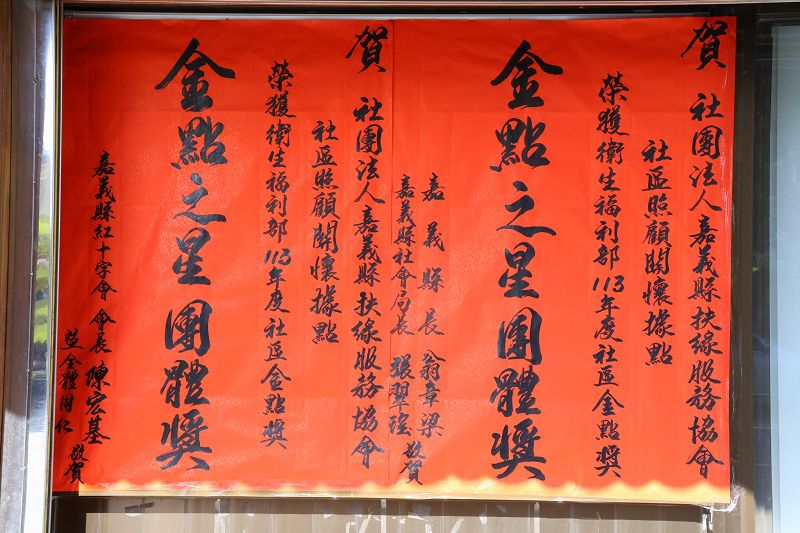 賀
社團法人嘉義縣扶緣服務協會
社區照顧關懷據點
榮獲衛生福利部113年度社區金點獎
金點之星團體獎
嘉義縣長 翁章梁
嘉義縣社會局長 張翠瑤 敬賀
賀
社團法人嘉義縣扶緣服務協會
社區照顧關懷據點
榮獲衛生福利部113年度社區金點獎
金點之星團體獎
嘉義縣紅十字會 會長 陳宏基
暨全體同仁 敬賀